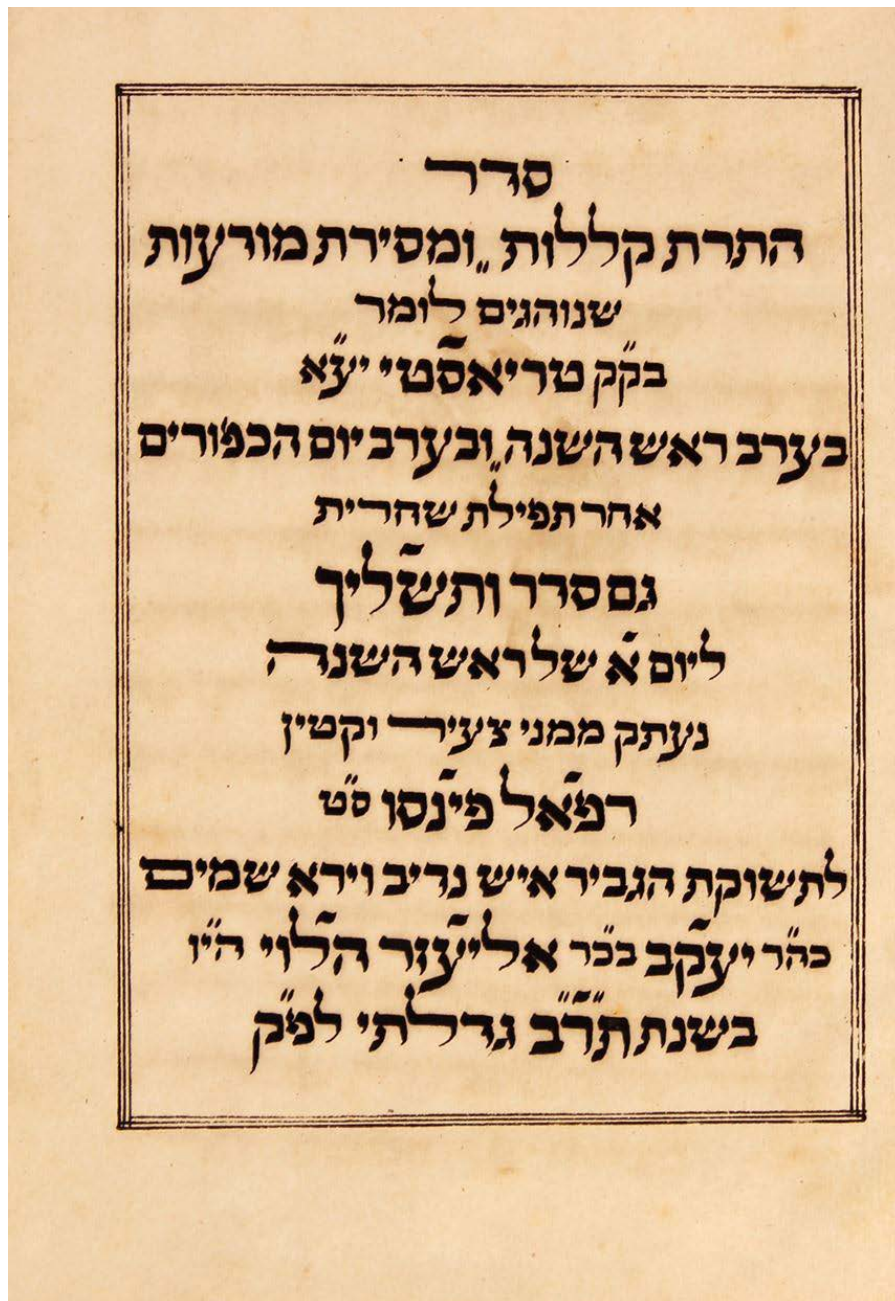 סדר
התרת קללות „ ומסירת מודעות
שנוהגים לומר
בק״ק טריאסטי יע״א
בערב ראש השנה „ ובערב יום הכפורים
אחר תפילת שחרית
גם סדר ותשליך
ליום א׳ של ראש השנה
נעתק ממני צעיר וקטין
רפאל פינסו ס״ט
לתשוקת הגביר איש נדיב וירא שמים
כה״ר יעקב בכ״ר אליעזר הלוי הי״ו
בשנת תר״ב גדלתי לפ״ק